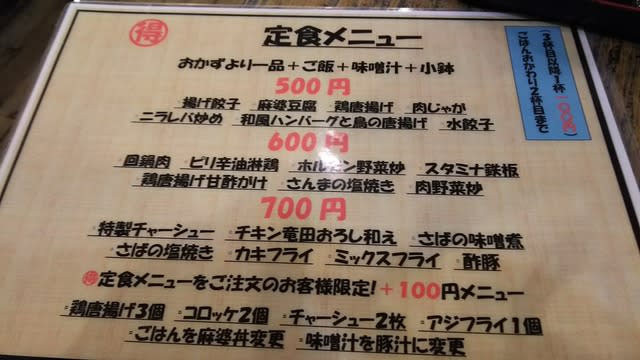 得 定食メニュー
おかずより一品＋ご飯＋味噌汁＋小鉢
ごはんおかわり2杯目まで
(3杯目以降1杯100円)
500円
揚げ餃子 麻婆豆腐 鶏唐揚げ 肉じゃが
ニラレバ炒め 和風ハンバーグと鳥の唐揚げ 水餃子
600円
回鍋肉 ピリ辛油淋鶏 ホルモン野菜炒 スタミナ鉄板
鶏唐揚げ甘酢かけ さんまの塩焼き 肉野菜炒
700円
特製チャーシュー チキン竜田おろし和え さばの味噌煮
さばの塩焼き カキフライ ミックスフライ 酢豚
得定食メニューをご注文のお客様限定!+100円メニュー
鶏唐揚げ3個 コロッケ2個 チャーシュー2枚 アジフライ1個
ごはんを麻婆丼変更 味噌汁を豚汁に変更